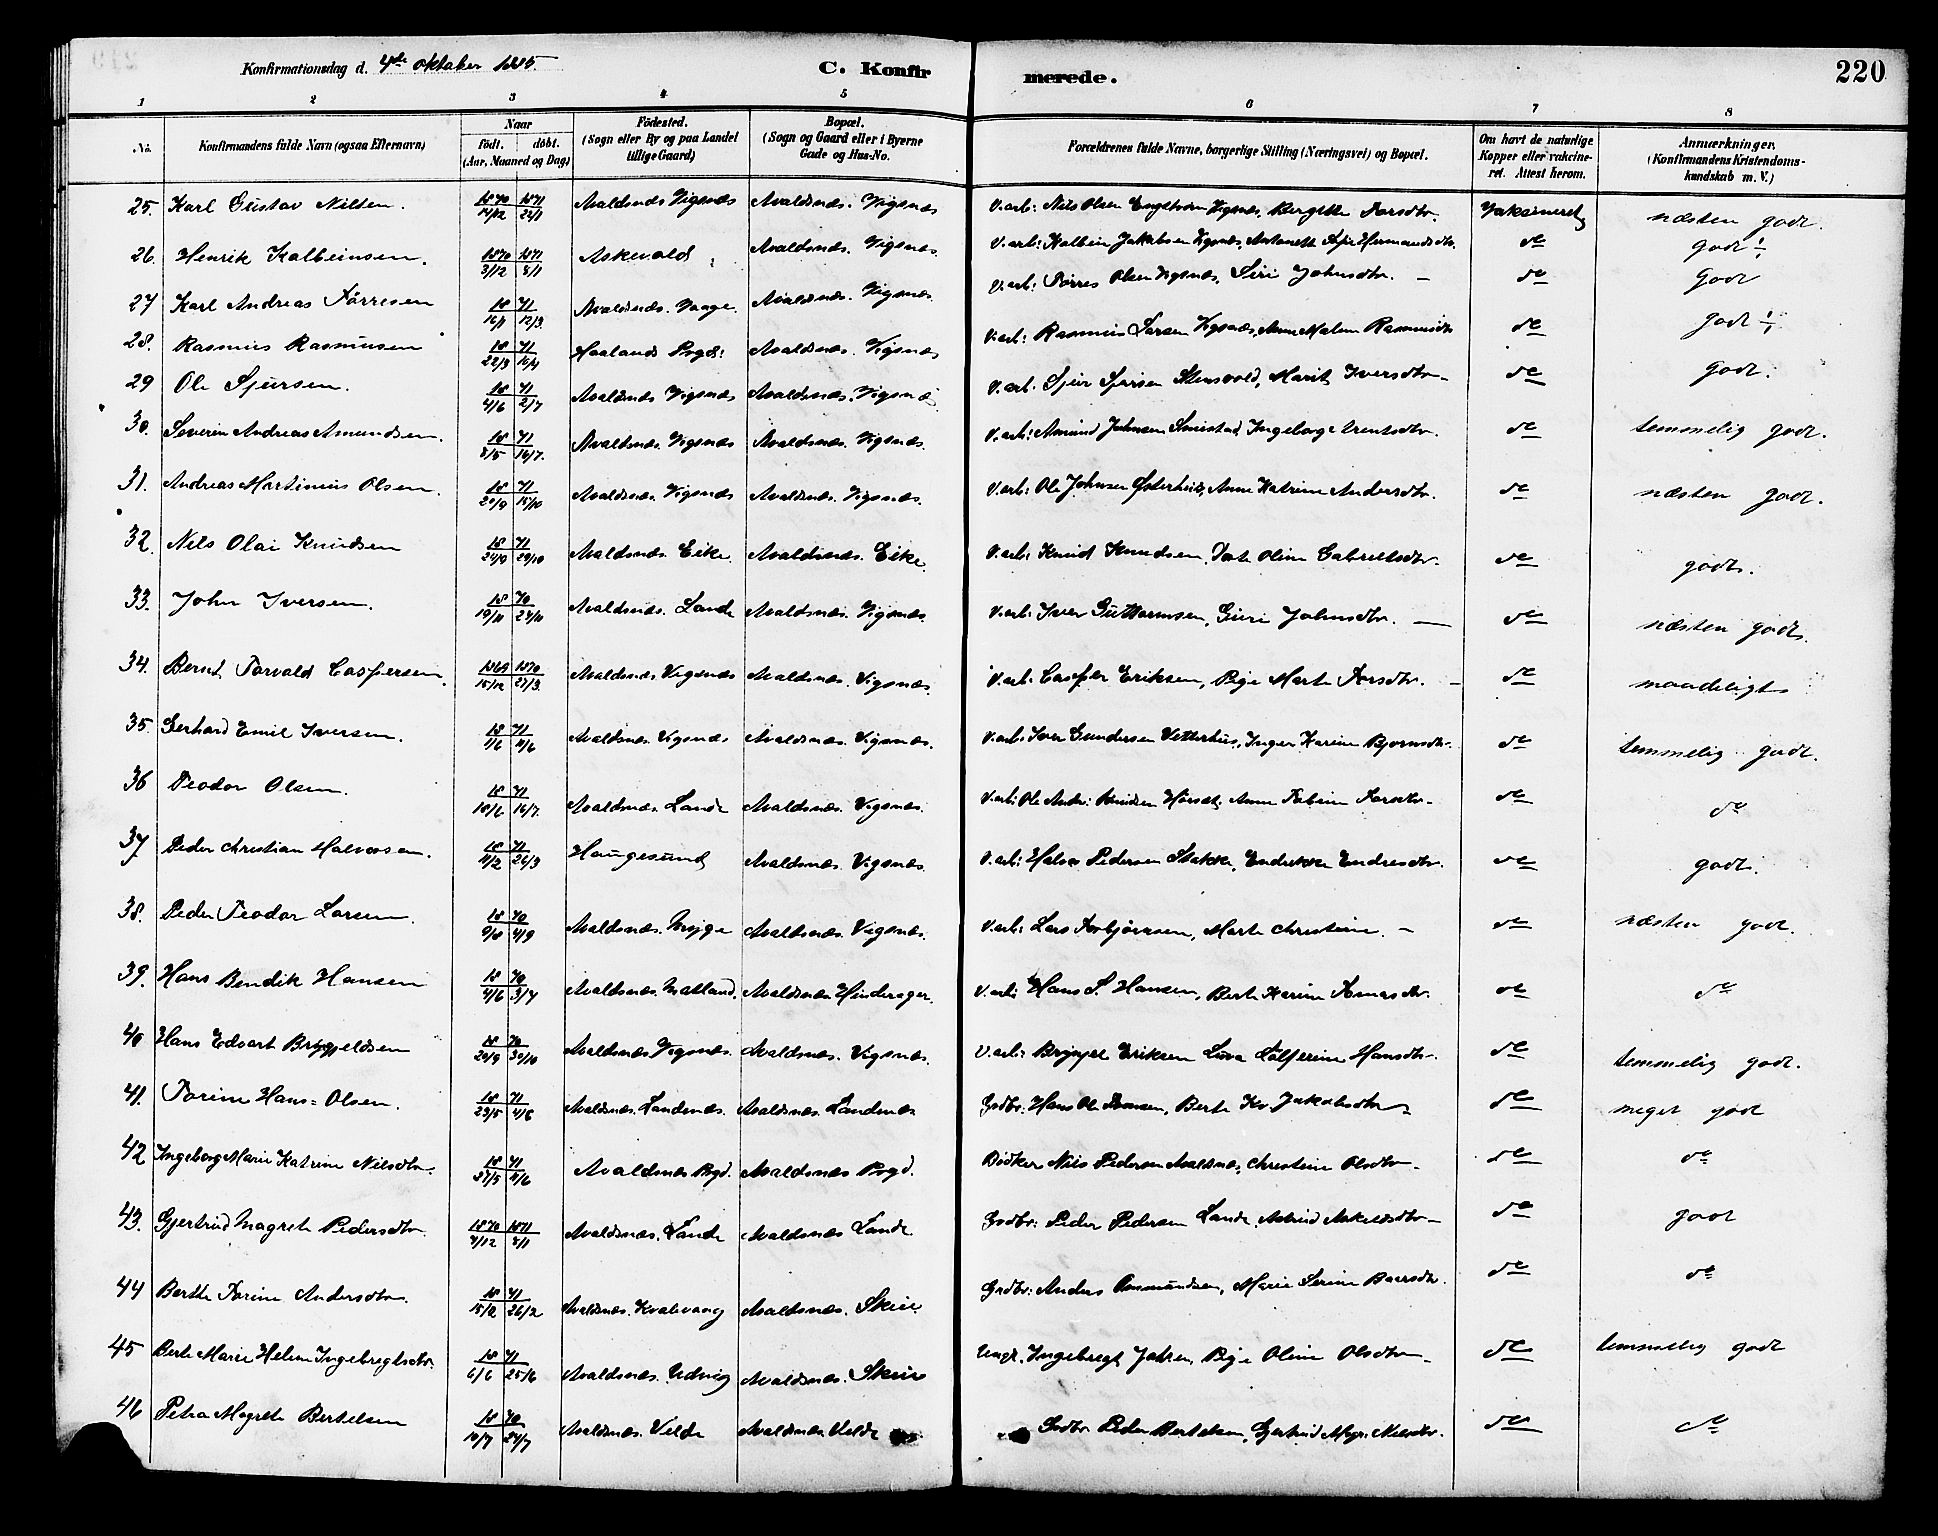 Konfirmationsdag d. 4de oktober 1885. C. Konfirmerede. 220
1 2 3 4 5 6 7 8
No. Konfirmandens fulde Navn (ogsaa Efternavn) Naar födt. döbt. (Aar, Maaned og Dag) Födested. (Sogn eller By og paa Landet tillige Gaard) Bopæl. (Sogn og Gaard eller i Byerne Gade og Hus-No. Forældrenes fulde Navne, borgerlige Stilling (Næringsvei) og Bopæl. Om havt de naturlige Kopper eller vakcineret. Attest herom. Anmærkninger. (Konfirmandens Kristendomskundskab m. V.)
25. Karl Gustav Nilsen. 1870 14/12 1871 22/1 Avaldsnes Vigsnæs Avaldsnæs. Vigsnæs V.arb: Nils Olsen Engstrøm Vigsnæs, Bergitte Larsdtr. Vakcineret næsten godt.
26. Henrik Kalbeinsen. 1870 3/12 1871 8/1 Askevold Avaldsnæs. Vigsnæs. V.arb: Kalbein Jakobsen Vigsnæs, Hermandsdtr. do godt
27 Karl Andreas Tørresen 18 71 16/1 12/3. Avaldsnæs. Vaage. Avaldsnæs. Vigsnæs. V.arb: Tørres Olsen Vigsnæs, Siri Johnsdtr. do Godt
28. Rasmus Rasmussen 18 71 22/3 15/4 Haalands Prgd: Avaldsnæs. Vigsnæs V.arb: Rasmus Larsen Vigsnæs, Anne Malene Rasmusdtr do godt
29 Ole Sjursen. 18 71 4/6 2/7 Avaldsnæs Vigsnæs Avaldsnæs. Vigsnæs. V.arb: Sjur Sjursen Stensvold, Marit Iversdtr do godt.
30. Severin Andreas Amundsen. 18 71 8/5 16/7. Avaldsnæs. Vigsnæs Avaldsnæs. Vigsnæs. V.arb: Amund Johnsen Ingeborg Arentsdtr. do temmelig godt.
31. Andreas Martinius Olsen. 18 71 20/9 15/10 Avaldsnæs. Vigsnæs Avaldsnæs. Vigsnæs. V.arb: Ole Johnsen Østerhus, Anne Katrine Andersdtr. do næsten godt.
32. Nils Olai Knudsen 18 71 24/9 29/10 Avaldsnæs. Eike. Avaldsnæs. Eike. V.arb: Knud Knudsen, Olene Gabrielsdtr. do godt.
33. John Iversen. 18 70 19/10 24/10 Avaldsnæs. Lande Avaldsnæs. Vigsnæs. V.arb: Iver Guttormsen, Guri Johnsdtr. do næsten godt.
34. Bernt Torvald Caspersen. 1869 15/12 1870 27/3. Avaldsnæs. Vigsnæs Avaldsnæs. Vigsnæs. V.arb: Casper Eriksen, Marte Larsdtr. do maadeligt
35. Gerhard Emil Iversen. 18 71 1/6 11/6 Avaldsnæs. Vigsnæs Avaldsnæs. Vigsnæs. V.arb: Iver Gundersen Vetterhus, Inger Karine Bjørnsdtr. do temmelig godt.
36 Teodor Olsen. 18 71 18/6 16/7. Avaldsnæs. Lande Avaldsnæs. Vigsnæs. V.arb: Ole Andr: Knudsen Anne Larsdtr do do
37 Peder Christian Halvorsen. 18 71 11/2 26/3 Haugesund Avaldsnæs. Vigsnæs. V.arb: Halvor Pedersen Endresdtr. do godt.
38. Peder Teodor Larsen. 18 70 4/9 Avaldsnæs. Myge Avaldsnæs. Vigsnæs. V.arb: Lars Torbjørnsen, Marte Christine. do næsten godt.
39. Hans Bendik Hansen 18 70 4/6 3/7 Avaldsnæs. Matland. Avaldsnæs Hinderager. V.arb: Hans S. Hansen, Berte Karine do do
40 Hans Edvart Brynjeldsen 18 70 20/9 30/10 Avaldsnæs. Vigsnæs. Avaldsnæs. Vigsnæs. V.arb: Brynjel Eriksen Hansdtr. do temmelig godt.
41. Torine Hans-Olsen. 18 71 23/5 4/6 Avaldsnæs. Landsnæs. Avaldsnæs. Landsnæs Grdbr: Hans Ole Berte Kr. Jakobsdtr do meget godt
42 Ingeborg Marie Katrine Nilsdtr. 18 71 27/5 11/6 Avaldsnæs Prgd. Avaldsnæs Prgd. Bødker Nils Pedersen Avaldsnæs, Christine Olsdtr do do
43. Gjertrud Magrete Pedersdtr 1870 4/12 1871 8/1 Avaldsnæs. Lande Avaldsnæs Lande Grdbr: Peder Pedersen Lande, Astrid Askeldsdtr do godt
44 Berthe Torine Andersdtr. 18 71 15/2 26/2 Avaldsnæs. Kvalevaag Avaldsnæs. Skeie Grdbr: Anders Osmundsen, Marie Serine do do
45 Berte Marie Helene Ingebregtsdtr. 18 71 6/6 25/6 Avaldsnæs. Utvig Avaldsnæs. Skeie Ingebregt Olene Olsdtr do temmelig godt
46 Petra Magrete Bertelsen 18 70 10/7 24/7 Avaldsnæs. Velde Avaldsnæs. Velde Grdbr. Peder Bertelsen, Gjertrud Magr. Nilsdtr. do do